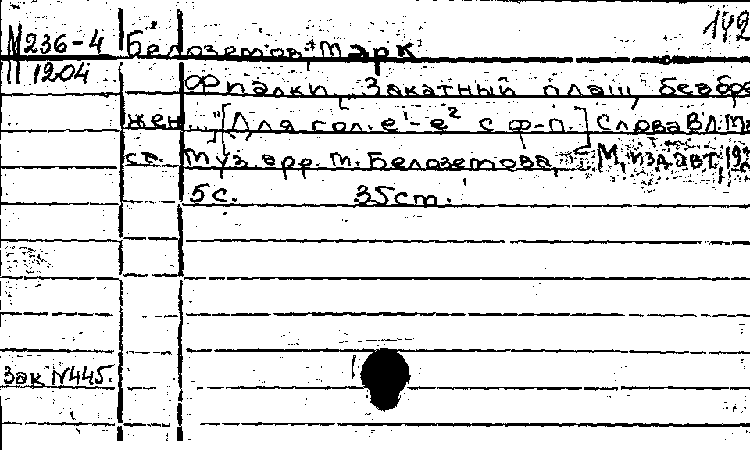 М236-4 Белоземов, Марк 192
II 1204 Фиалки... Закатный плащ, безбре
жен...," [Для гол. e¹-e² с ф-п.] Слова Вл. Ма
ст. Муз. арр. М. Белоземова, М, изд. авт., 192
5с. 35cm.
Зак N445.